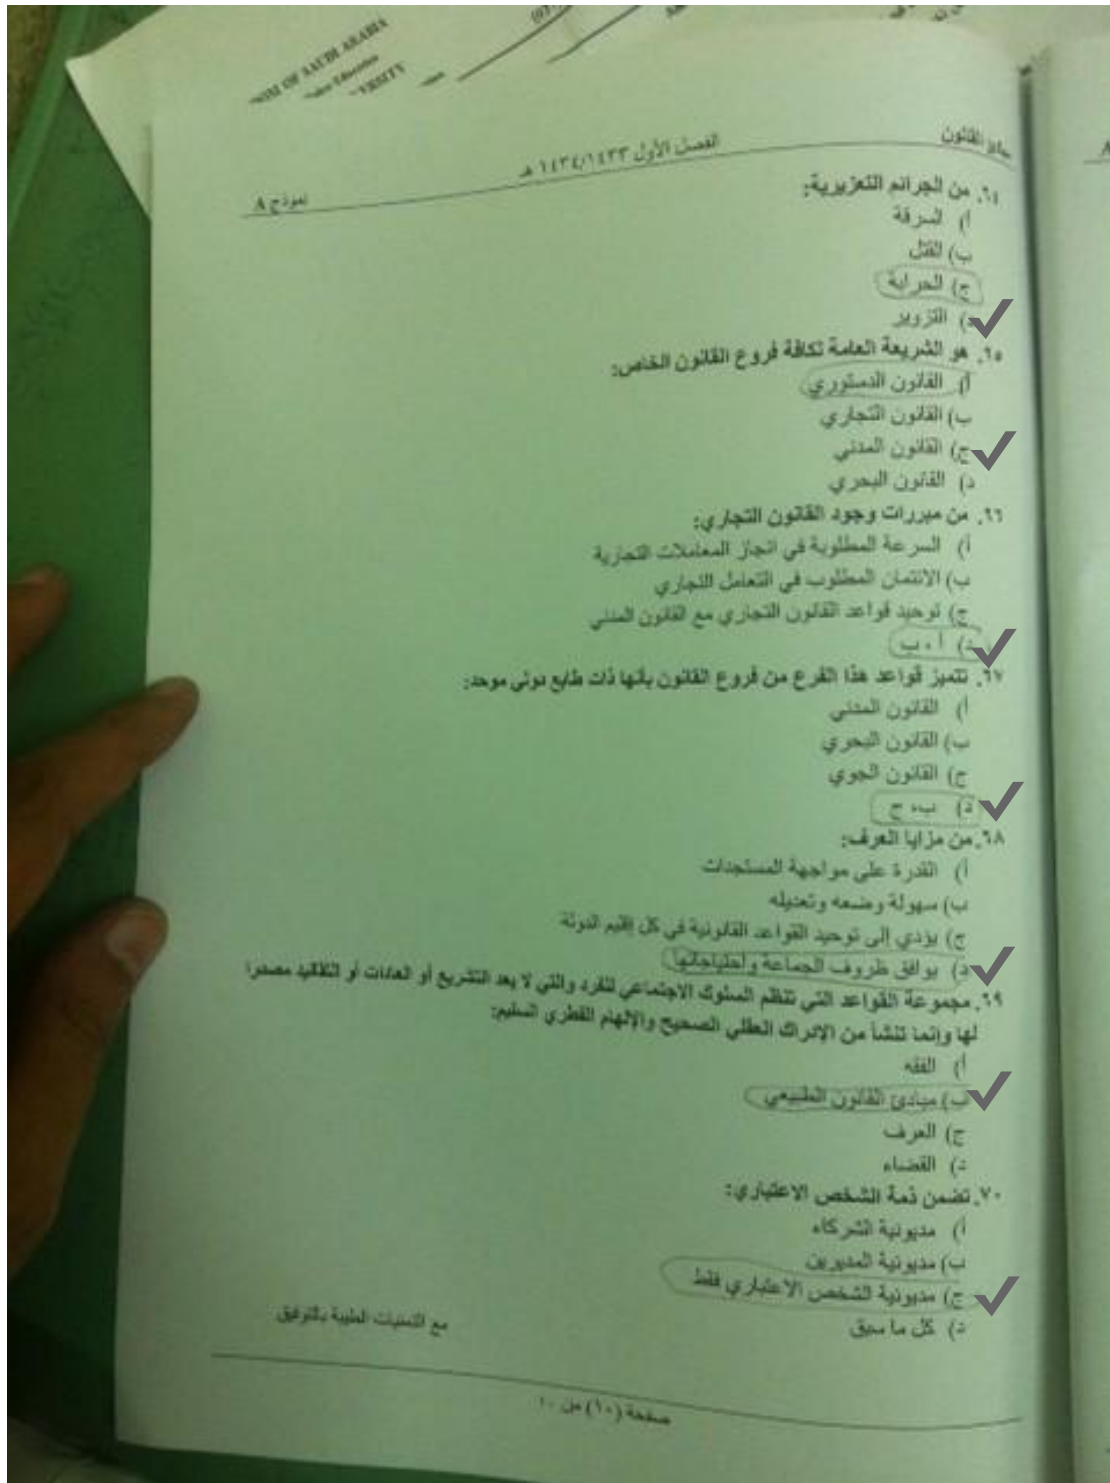 OF SAUDI ARABIA
الفصل الأول ١٤٣٤/١٤٣٣ هـ
القانون
نموذج A
٦٤. من الجرائم التعزيرية:
أ) السرقة
ب) القتل
ج) الحرابة
د) التزوير
٦٥. هو الشريعة العامة لكافة فروع القانون الخاص:
أ) القانون الدستوري
ب) القانون التجاري
ج) القانون المدني
د) القانون البحري
٦٦. من مبررات وجود القانون التجاري:
أ) السرعة المطلوبة في انجاز المعاملات التجارية
ب) الائتمان المطلوب في التعامل التجاري
ج) توحيد قواعد القانون التجاري مع القانون المدني
د) أ ، ب
٦٧. تتميز قواعد هذا الفرع من فروع القانون بأنها ذات طابع دولي موحد:
أ) القانون المدني
ب) القانون البحري
ج) القانون الجوي
د) ب، ج
٦٨. من مزايا العرف:
أ) القدرة على مواجهة المستجدات
ب) سهولة وضعه وتعديله
ج) يؤدي إلى توحيد القواعد القانونية في كل إقليم الدولة
د) يوافق ظروف الجماعة واحتياجاتها
٦٩. مجموعة القواعد التي تنظم السلوك الاجتماعي للفرد والتي لا يعد التشريع أو العادات أو التقاليد مصدرا
لها وإنما تنشأ من الإدراك العقلي الصحيح والإلهام الفطري السليم:
أ) الفقه
ب) مبادئ القانون الطبيعي
ج) العرف
د) القضاء
٧٠. تضمن ذمة الشخص الاعتباري:
أ) مديونية الشركاء
ب) مديونية المديرين
ج) مديونية الشخص الاعتباري فقط
د) كل ما سبق
مع التمنيات الطيبة بالتوفيق
صفحة (١٠) من ١٠